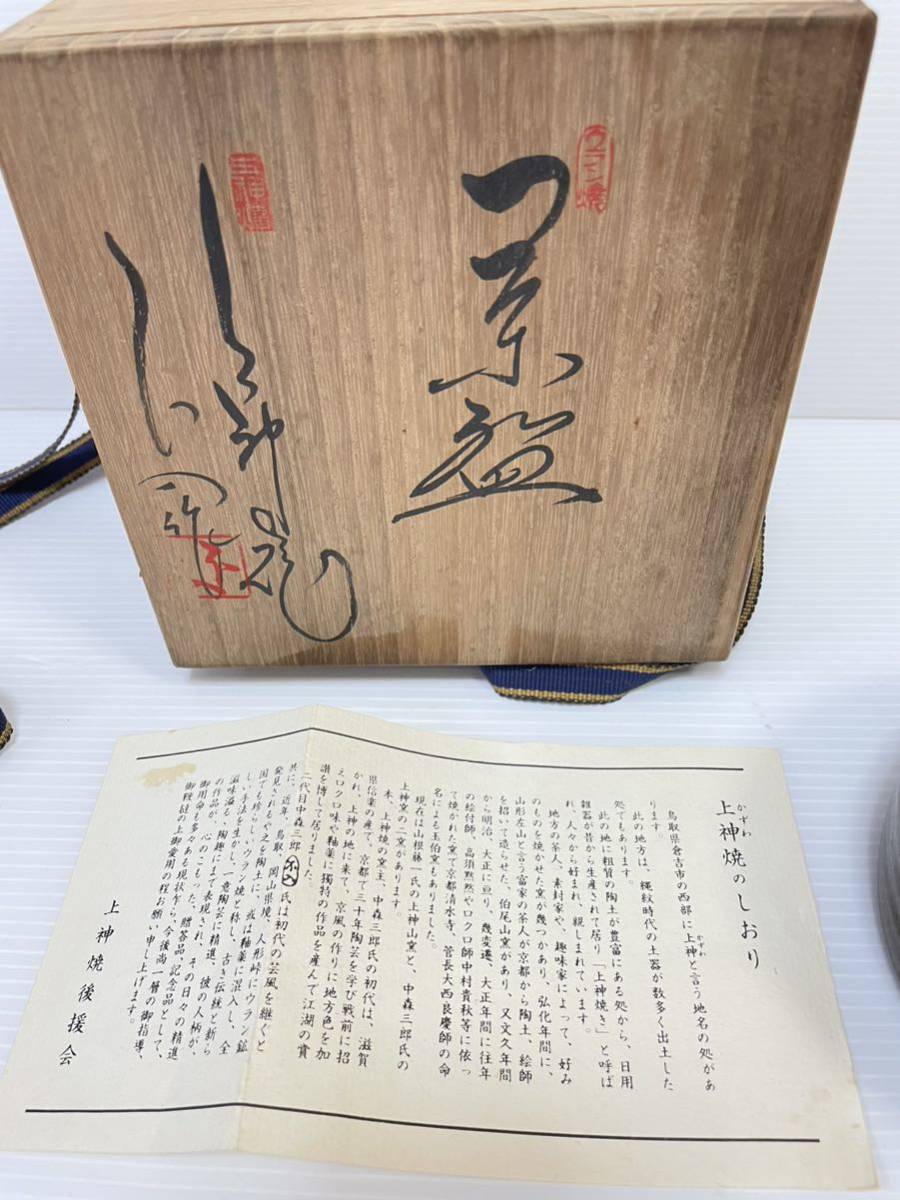 菓盆
ウラン焼
上神焼
上神焼のしおり
かずわ
鳥取県倉吉市の西部に上神と言う地名の処があ
かずわ
ります。
この地方は、縄紋時代の土器が数多く出土した
処でもあります。
此の地に粗質の陶土が豊富にある処から、日用
雑器が昔から生産されて居り「上神焼き」と呼ば
れ、人々から好まれ、親しまれています。
地方の茶人、素封家や、趣味家によって、好み
のものを焼かせた窯が幾つかあり、弘化年間に、
山形左山と言う富家の茶人が京都から陶土、絵師
を招いて造らせた、伯尾山窯があり、又文久年間
から明治、大正に亘り、幾変遷、大正年間に往年
の絵付師、高須黙然やロクロ師中村貴秋等に依っ
て焼かれた窯で京都清水寺、管長大西良慶師の命
名による玉伯窯もありました。
現在は山根藤一氏の上神山窯と、中森三郎氏の
上神窯の二窯があります。
本、上神焼の窯主、中森三郎氏の初代は、滋賀
県信楽の産で、京都で三十年陶芸を学び戦前に招
かれ、上神の地に来て、京風の作りに地方色を加
えロクロ味や釉薬に獨特の作品を産んで江湖の賞
讃を博して居りました。
二代目中森三郎氏は初代の芸風を継ぐと
共に、近年、鳥取、岡山県境、人形峠にウラン鉱
発見されるや之を陶土に、或は釉薬に混入し、全
国でも珍らしいウラン焼と称し、古き伝統と新ら
しい手法を生かし、一意陶芸に精進、彼の人柄が、
滋味溢る、陶趣にまで表現され、その日々の精進
の作品が、心のこもった、贈答品、記念品として、
御用命も多々ある現状乍ら、今後尚一層の御指導、
御鞭撻の上御愛用の程お願い申し上げます。
上神焼後援会